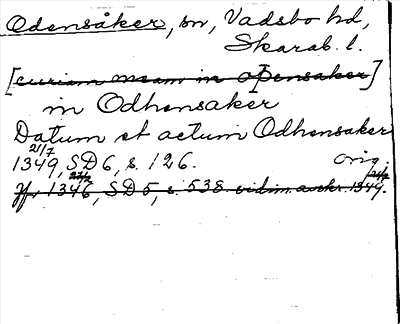 Odensåker, sn, Vadsbo hd,
Skarab. l.
[curiam meam in opensaker]
in Odhensaker
Datum et actum Odhensaker
21/7
1349, SD 6, s. 126. orig.
Jfr 1346, SD 5, s. 538 vidim. avskr. 1349.